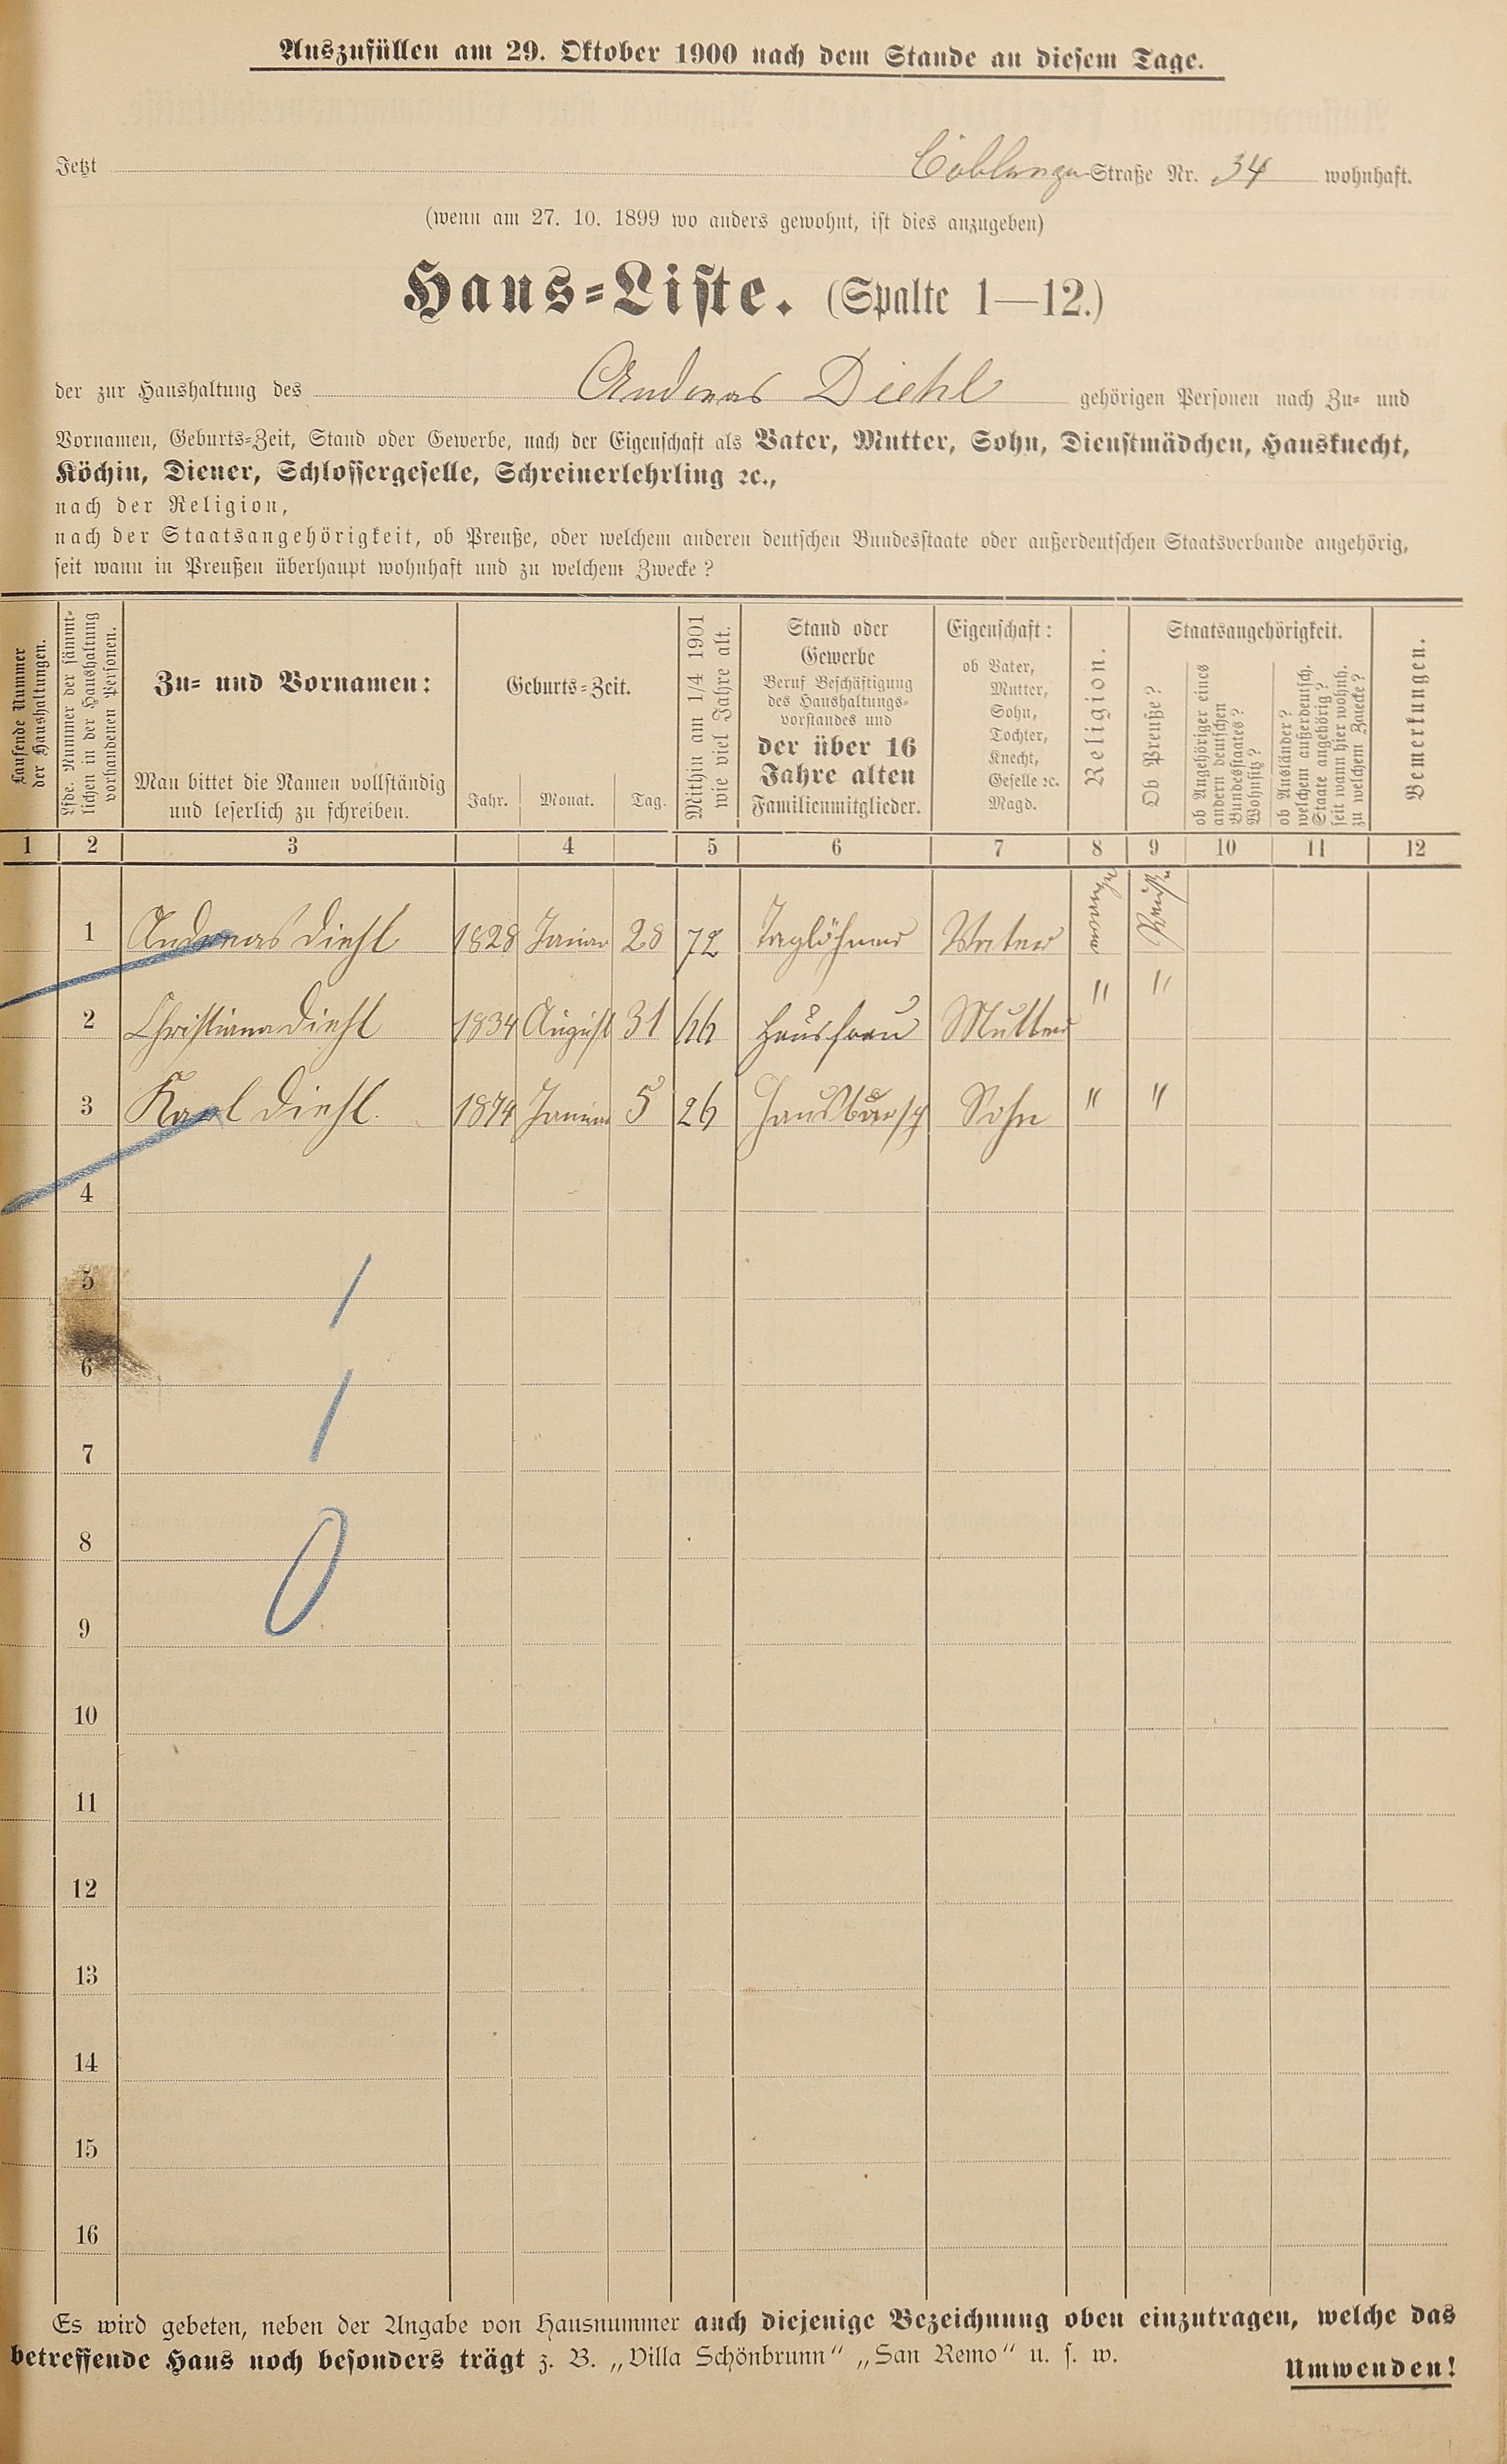 Auszufüllen am 29. Oktober 1900 nach dem Stande an diesem Tage.
Jetzt Coblenzer Straße Nr. 34 wohnhaft.
(wenn am 27. 10. 1899 wo anders gewohnt, ist dies anzugeben)
Haus-Liste. (Spalte 1—12.)
der zur Haushaltung des Andreas Diehl gehörigen Personen nach Zu- und
Vornamen, Geburts-Zeit, Stand oder Gewerbe, nach der Eigenschaft als Vater, Mutter, Sohn, Dienstmädchen, Hausknecht,
Köchin, Diener, Schlossergeselle, Schreinerlehrling ꝛc.,
nach der Religion,
nach der Staatsangehörigkeit, ob Preuße, oder welchem anderen deutschen Bundesstaate oder außerdeutschen Staatsverbande angehörig,
seit wann in Preußen überhaupt wohnhaft und zu welchem Zwecke?
Laufende Nummer
der Haushaltungen.
Lfde. Nummer der sämmt-
lichen in der Haushaltung
vorhandenen Personen.
Zu- und Vornamen:
Man bittet die Namen vollständig
und leserlich zu schreiben.
Geburts-Zeit.
Jahr. Monat. Tag.
Mithin am 1/4 1901
wie viel Jahre alt.
Stand oder
Gewerbe
Beruf Beschäftigung
des Haushaltungs-
vorstandes und
der über 16
Jahre alten
Familienmitglieder.
Eigenschaft:
ob Vater,
Mutter,
Sohn,
Tochter,
Knecht,
Geselle ꝛc.
Magd.
Religion.
Staatsangehörigkeit.
Ob Preuße?
ob Angehöriger eines
andern deutschen
Bundesstaates?
Wohnsitz?
ob Ausländer?
welchem außerdeutsch.
Staate angehörig?
seit wann hier wohnh.
zu welchem Zwecke?
Bemerkungen.
1 2 3 4 5 6 7 8 9 10 11 12
1 Andreas Diehl 1828 Januar 28 72 Taglöhner Vater Preuße
2 Christiana Diehl 1834 August 31 66 Hausfrau Mutter " "
3 Karl Diehl. 1874 Januar 5 26 Hausbursch Sohn " "
4
5
6
7
8
9
10
11
12
13
14
15
16
Es wird gebeten, neben der Angabe von Hausnummer auch diejenige Bezeichnung oben einzutragen, welche das
betreffende Haus noch besonders trägt z. B. „Villa Schönbrunn" „San Remo" u. s. w.
Umwenden!